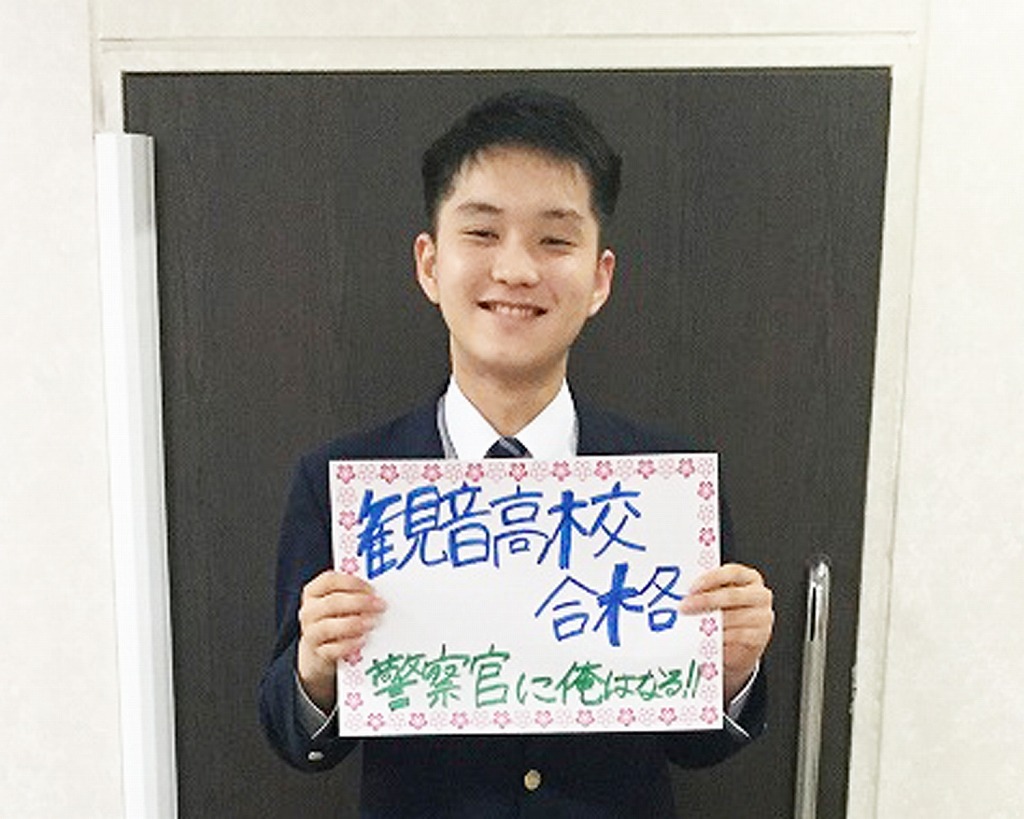 観音高校
合格
警察官に俺はなる!!